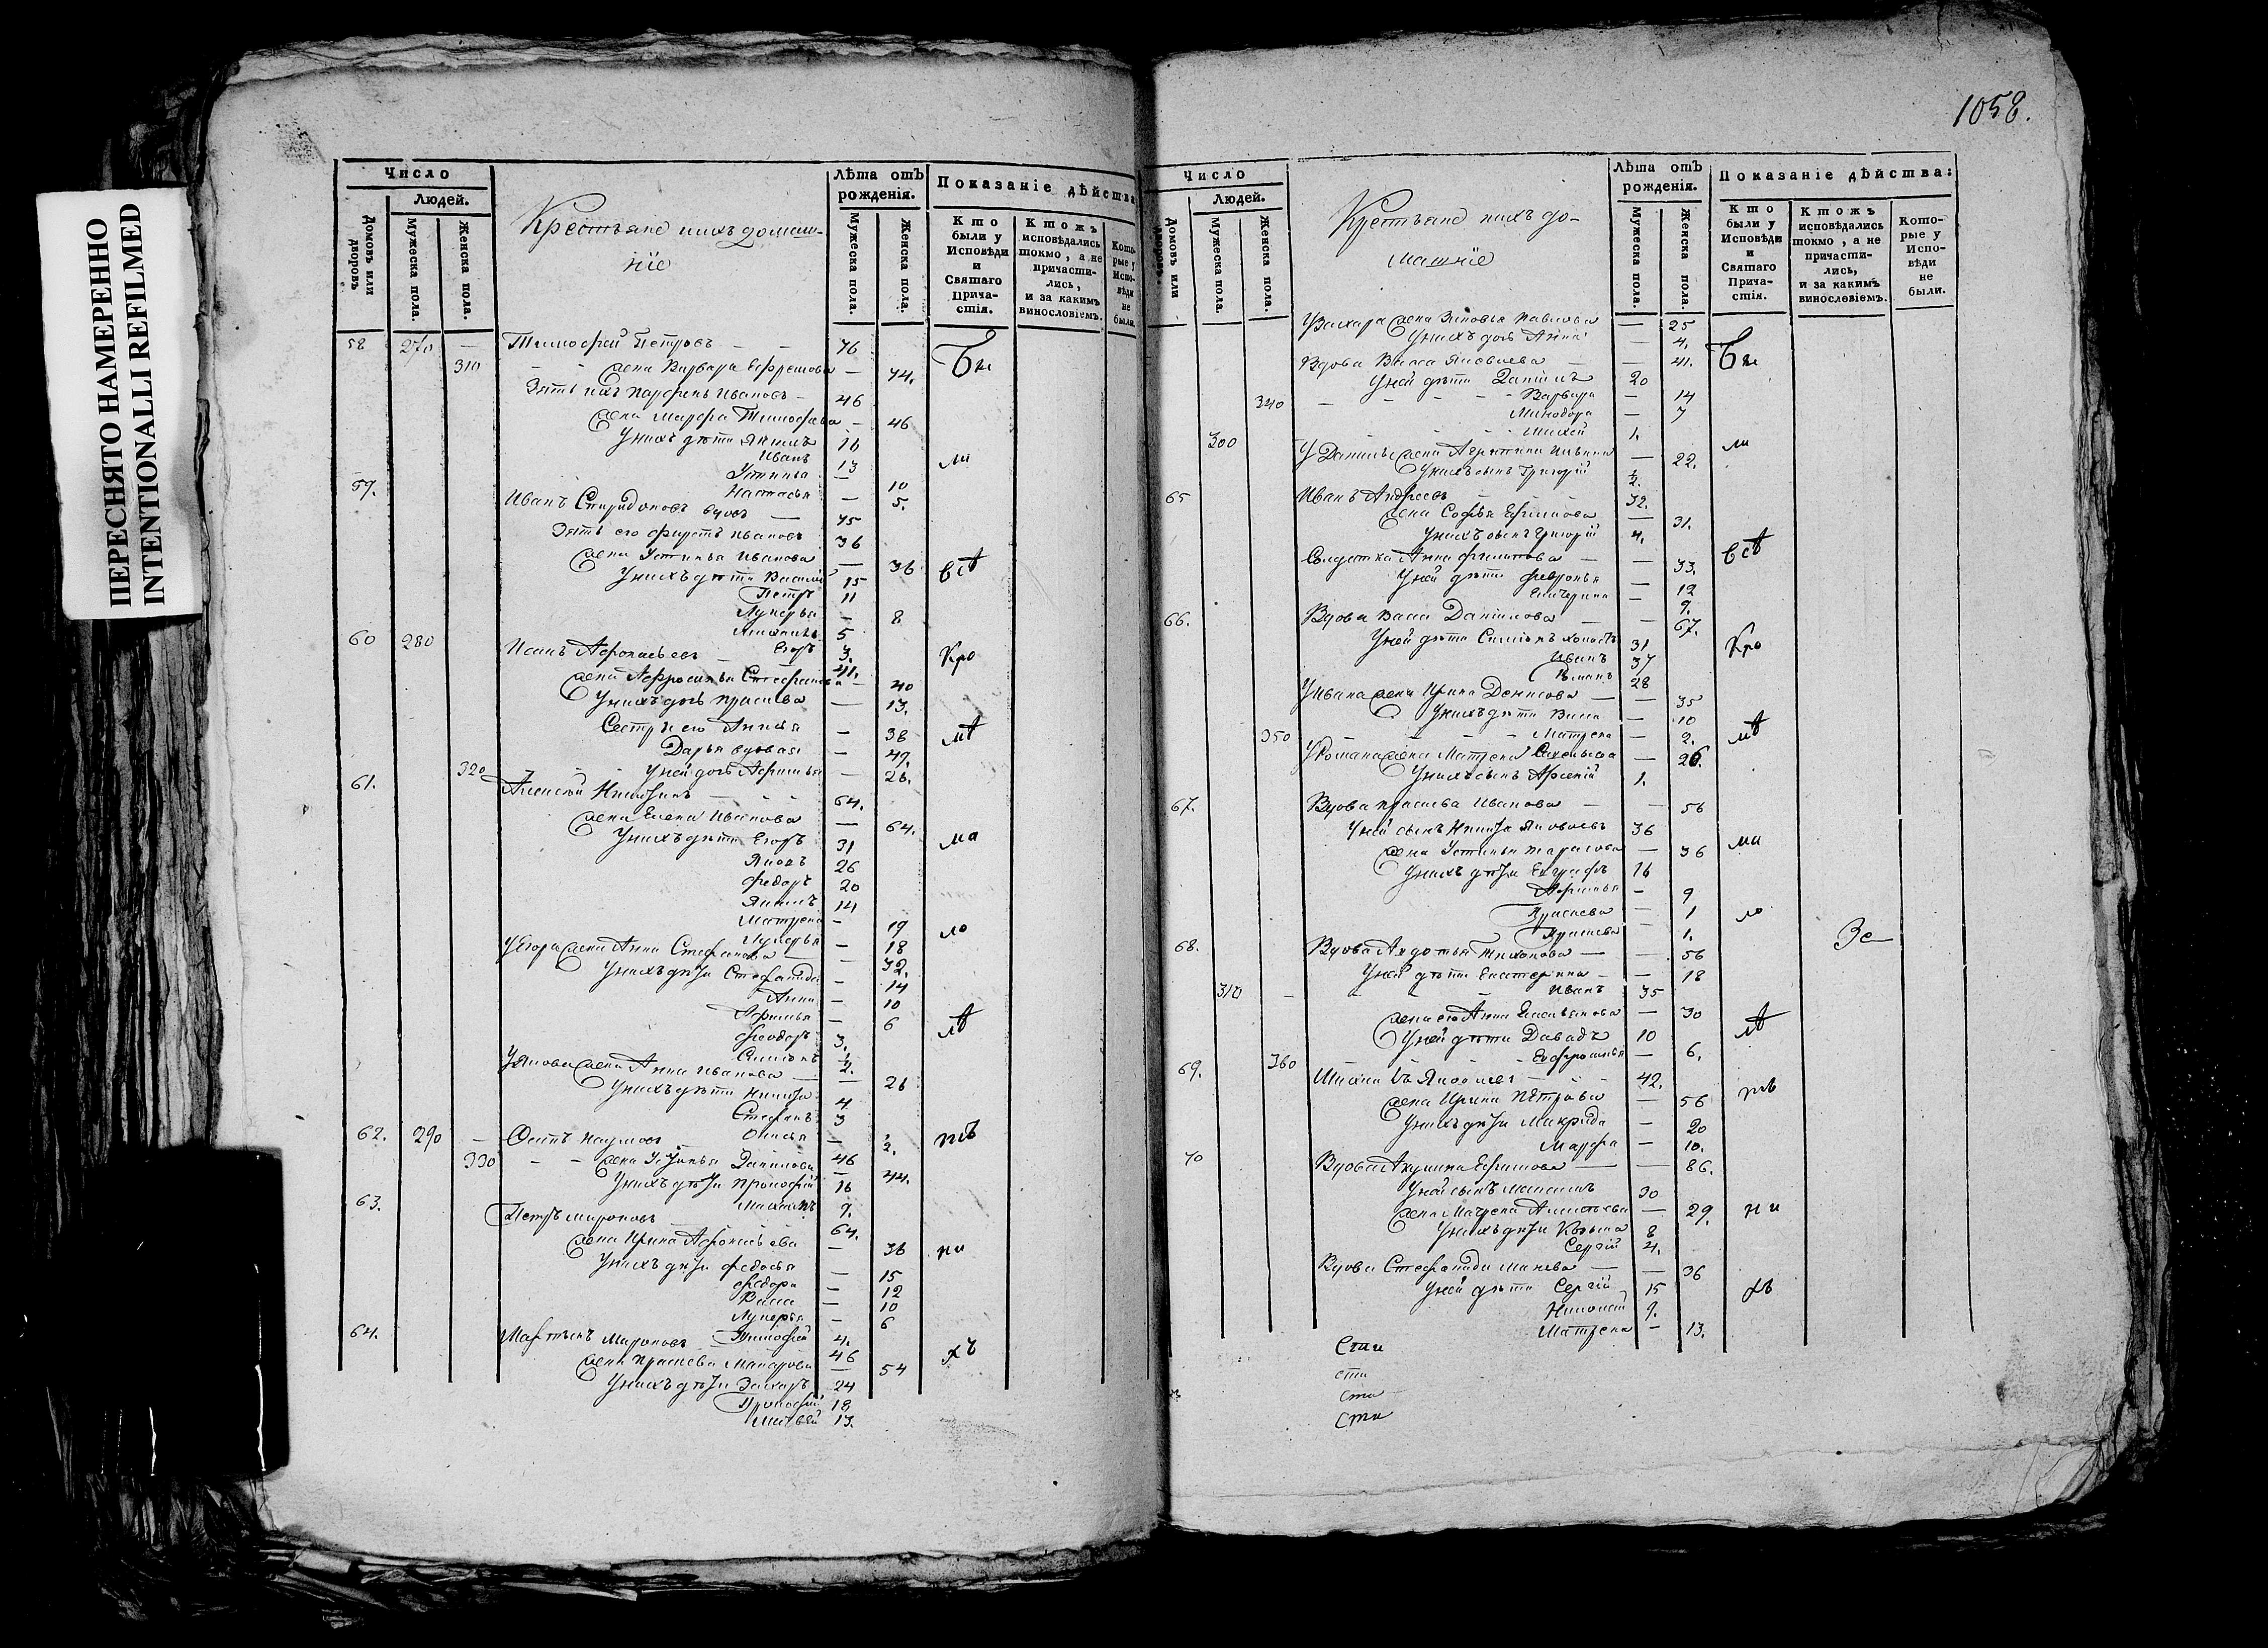 ПЕРЕСНЯТО НАМЕРЕННО
INTENTIONALLI REFILMED
Число
Людей.
Домовъ или дворовъ
Мужеска пола.
Женска пола.
Крестьяне ихъ домаш-
ніе
Лѣта отъ рожденія.
Мужеска пола.
Женска пола.
Показаніе дѣйства
Кто были у Исповѣди и Святаго Прича-стія.
Ктожъ исповѣдались токмо, а не причасти-лись, и за какимъ винословіемъ.
Кото-рые у Испо-вѣди не были.
58 270 — Тимофей Петровъ — — 76
310 жена Варвара Ефремова — 74.
Зять ихъ Парфенъ Ивановъ — 46
жена Марфа Тимофеева — 46
У нихъ дѣти
Иванъ 13
Устинья — 10
Настасья — 5.
59. Иванъ Спиридоновъ вдовъ — 75
Зять его Ивановъ 36
жена Устинья Иванова — 36
У нихъ дѣти Василій 15
Петръ 11
Лукерья — 8
5
Егоръ 3.
60 280 Исаакъ Афонасьевъ 41.
жена — 40
У нихъ дочь Прасковья — 13.
Сестры его — 38
Дарья вдова — 49.
320 У ней дочь Афимья — 26.
61. Алексѣй Никитинъ — 64.
жена Елена Иванова — 64.
У нихъ дѣти Егоръ 31
Яковъ 26
Федоръ 20
14
Матрена — 19
Лукерья — 18
У Егора жена Анна Стефанова — 32.
У нихъ дѣти Стефанида — 14
Анна — 10
Афимья — 6
Феодоръ 3.
Симіонъ ½.
У Якова жена Анна Иванова — 26
У нихъ дѣти Никита 4
Стефанъ 3
— 2.
62. 290 — Осипъ Наумовъ 46
330 — — жена Устинья Данилова — 44.
У нихъ дѣти Прокофій 16
9.
63. Петръ Мироновъ 64.
жена Ирина Афонасьева — 36
У нихъ дѣти Федосья — 15
Федора — 12
Васса — 10
Лукерья — 6
Тимофей 4.
64. Мартынъ Мироновъ 46
жена Прасковья Макарова — 54
У нихъ дѣти Захаръ 24
Прокофій 18
Матвѣй 13.
Бы
ли
всѣ
кро
мѣ
ма
ло
лѣ
тъ
ни
хъ
1058.
Число
Людей.
Домовъ или дворовъ
Мужеска пола.
Женска пола.
Крестьяне ихъ до-
машніе
Лѣта отъ рожденія.
Мужеска пола.
Женска пола.
Показаніе дѣйства:
Кто были у Исповѣди и Святаго Прича-стія.
Ктожъ исповѣдались токмо, а не причасти-лись, и за какимъ винословіемъ.
Кото-рые у Испо-вѣди не были.
У Захара жена Зиновья Павлова — 25
У нихъ дочь Анна — 4.
Вдова Васса Яковлева — 41.
У ней дѣти Даніилъ 20
340 Варвара — 14
Минодора — 7
300 1.
У Даніила жена — 22.
У нихъ сынъ Григорій ½.
65 Иванъ Андреевъ 32.
жена Софья Ефимова — 31.
У нихъ сынъ Григорій 4.
Солдатка Анна Филипова — 33.
У ней дѣти Февронья — 12
Екатерина — 9.
66. Вдова Васса Данилова — 67.
У ней дѣти Симіонъ холостъ 31
Иванъ 37
Романъ 28
У Ивана жена Ирина Денисова — 35
У нихъ дѣти Васса — 10
350 Матрена — 2.
У Романа жена Матрена — 26.
У нихъ сынъ Арсеній 1.
67. Вдова Прасковья Иванова — 56
У ней сынъ Никита Яковлевъ 36
жена Устинья Тарасова — 36
У нихъ дѣти Евграфъ 16
Афимья — 9
Прасковья — 1
Прасковья — 1.
68. Вдова Авдотья Тихонова — 56
У ней дѣти Екатерина — 18
310 — Иванъ 35
жена его Анна — 30
У ней дѣти Давидъ 10
360 Евфросинья — 6.
69. 42.
жена Ирина Петрова — 56
У нихъ дѣти Макрида — 20
Марфа — 10.
70 Вдова Акулина Ефимова — 86.
У ней сынъ Максимъ 30
жена Матрена — 29.
У нихъ дѣти Козьма 8
Сергій 4.
Вдова Стефанида — 36
У ней дѣти Сергій 15
Николай 9.
Матрена — 13.
Бы
ли
всѣ
кро
мѣ
ма
ло
лѣ
тъ
ни
хъ